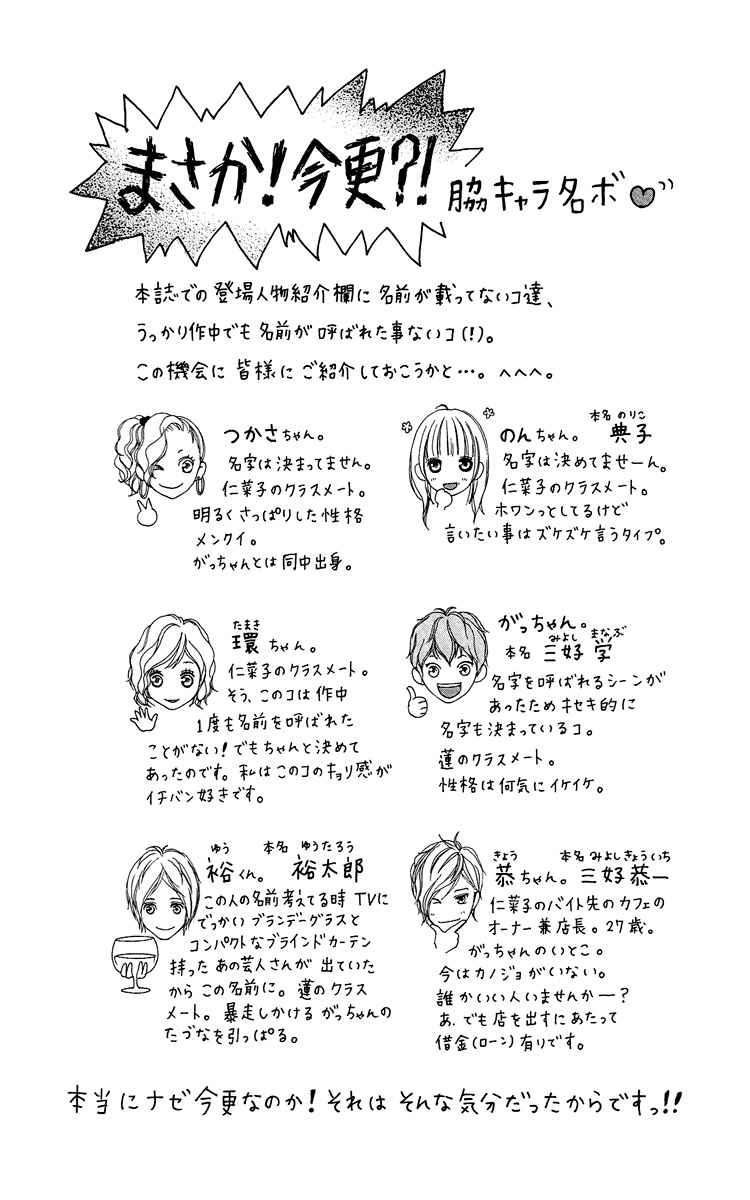 まさか!今更?! 脇キャラ名ボ
本誌での登場人物紹介欄に名前が載ってないコ達、
うっかり作中でも名前が呼ばれた事ないコ(!)。
この機会に皆様にご紹介しておこうかと…。へへへ。
つかさちゃん。
名字は決まってません。
仁菜子のクラスメート。
明るくさっぱりした性格
メンクイ。
がっちゃんとは同中出身。
本名 のりこ
のんちゃん。 典子
名字は決めてませーん。
仁菜子のクラスメート。
ホワンっとしてるけど
言いたい事はズケズケ言うタイプ。
たまき
環ちゃん。
仁菜子のクラスメート。
そう、このコは作中
1度も名前を呼ばれた
ことがない!でもちゃんと決めて
あったのです。私はこのコのキョリ感が
イチバン好きです。
がっちゃん。
みよし まなぶ
本名 三好 学
名字を呼ばれるシーンが
あったためキセキ的に
名字も決まっているコ。
蓮のクラスメート。
性格は何気にイケイケ。
ゆう 本名 ゆうたろう
裕くん。 裕太郎
この人の名前考えてる時TVに
でっかいブランデーグラスと
コンパクトなブラインドカーテン
持ったあの芸人さんが出ていた
からこの名前に。蓮のクラス
メート。暴走しかけるがっちゃんの
たづなを引っぱる。
きょう 本名 みよしきょういち
恭ちゃん。三好恭一
仁菜子のバイト先のカフェの
オーナー兼店長。27歳。
がっちゃんのいとこ。
今はカノジョがいない。
誰かいい人いませんかー?
あ、でも店を出すにあたって
借金(ローン)有りです。
本当にナゼ今更なのか!それはそんな気分だったからですっ!!